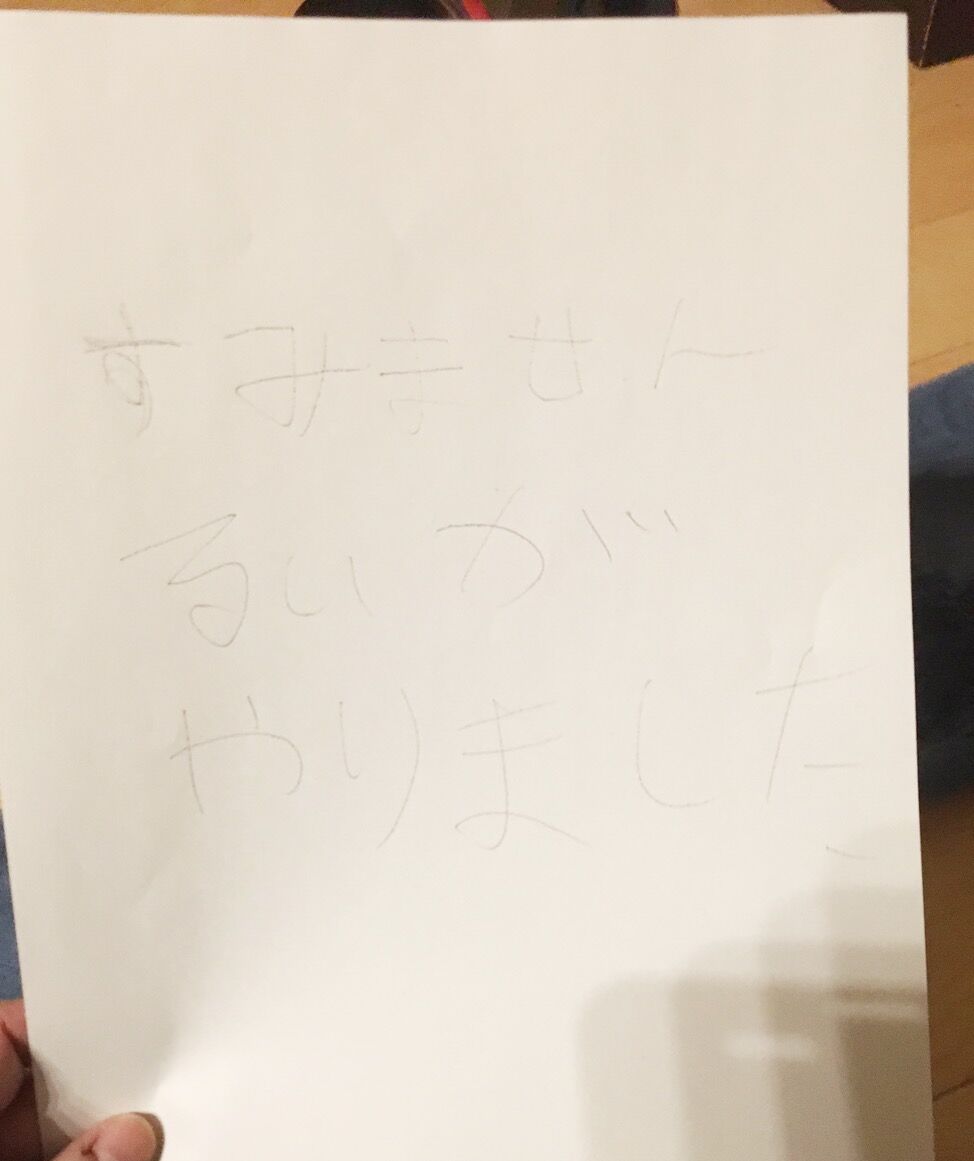 すみません
るいが
やりました